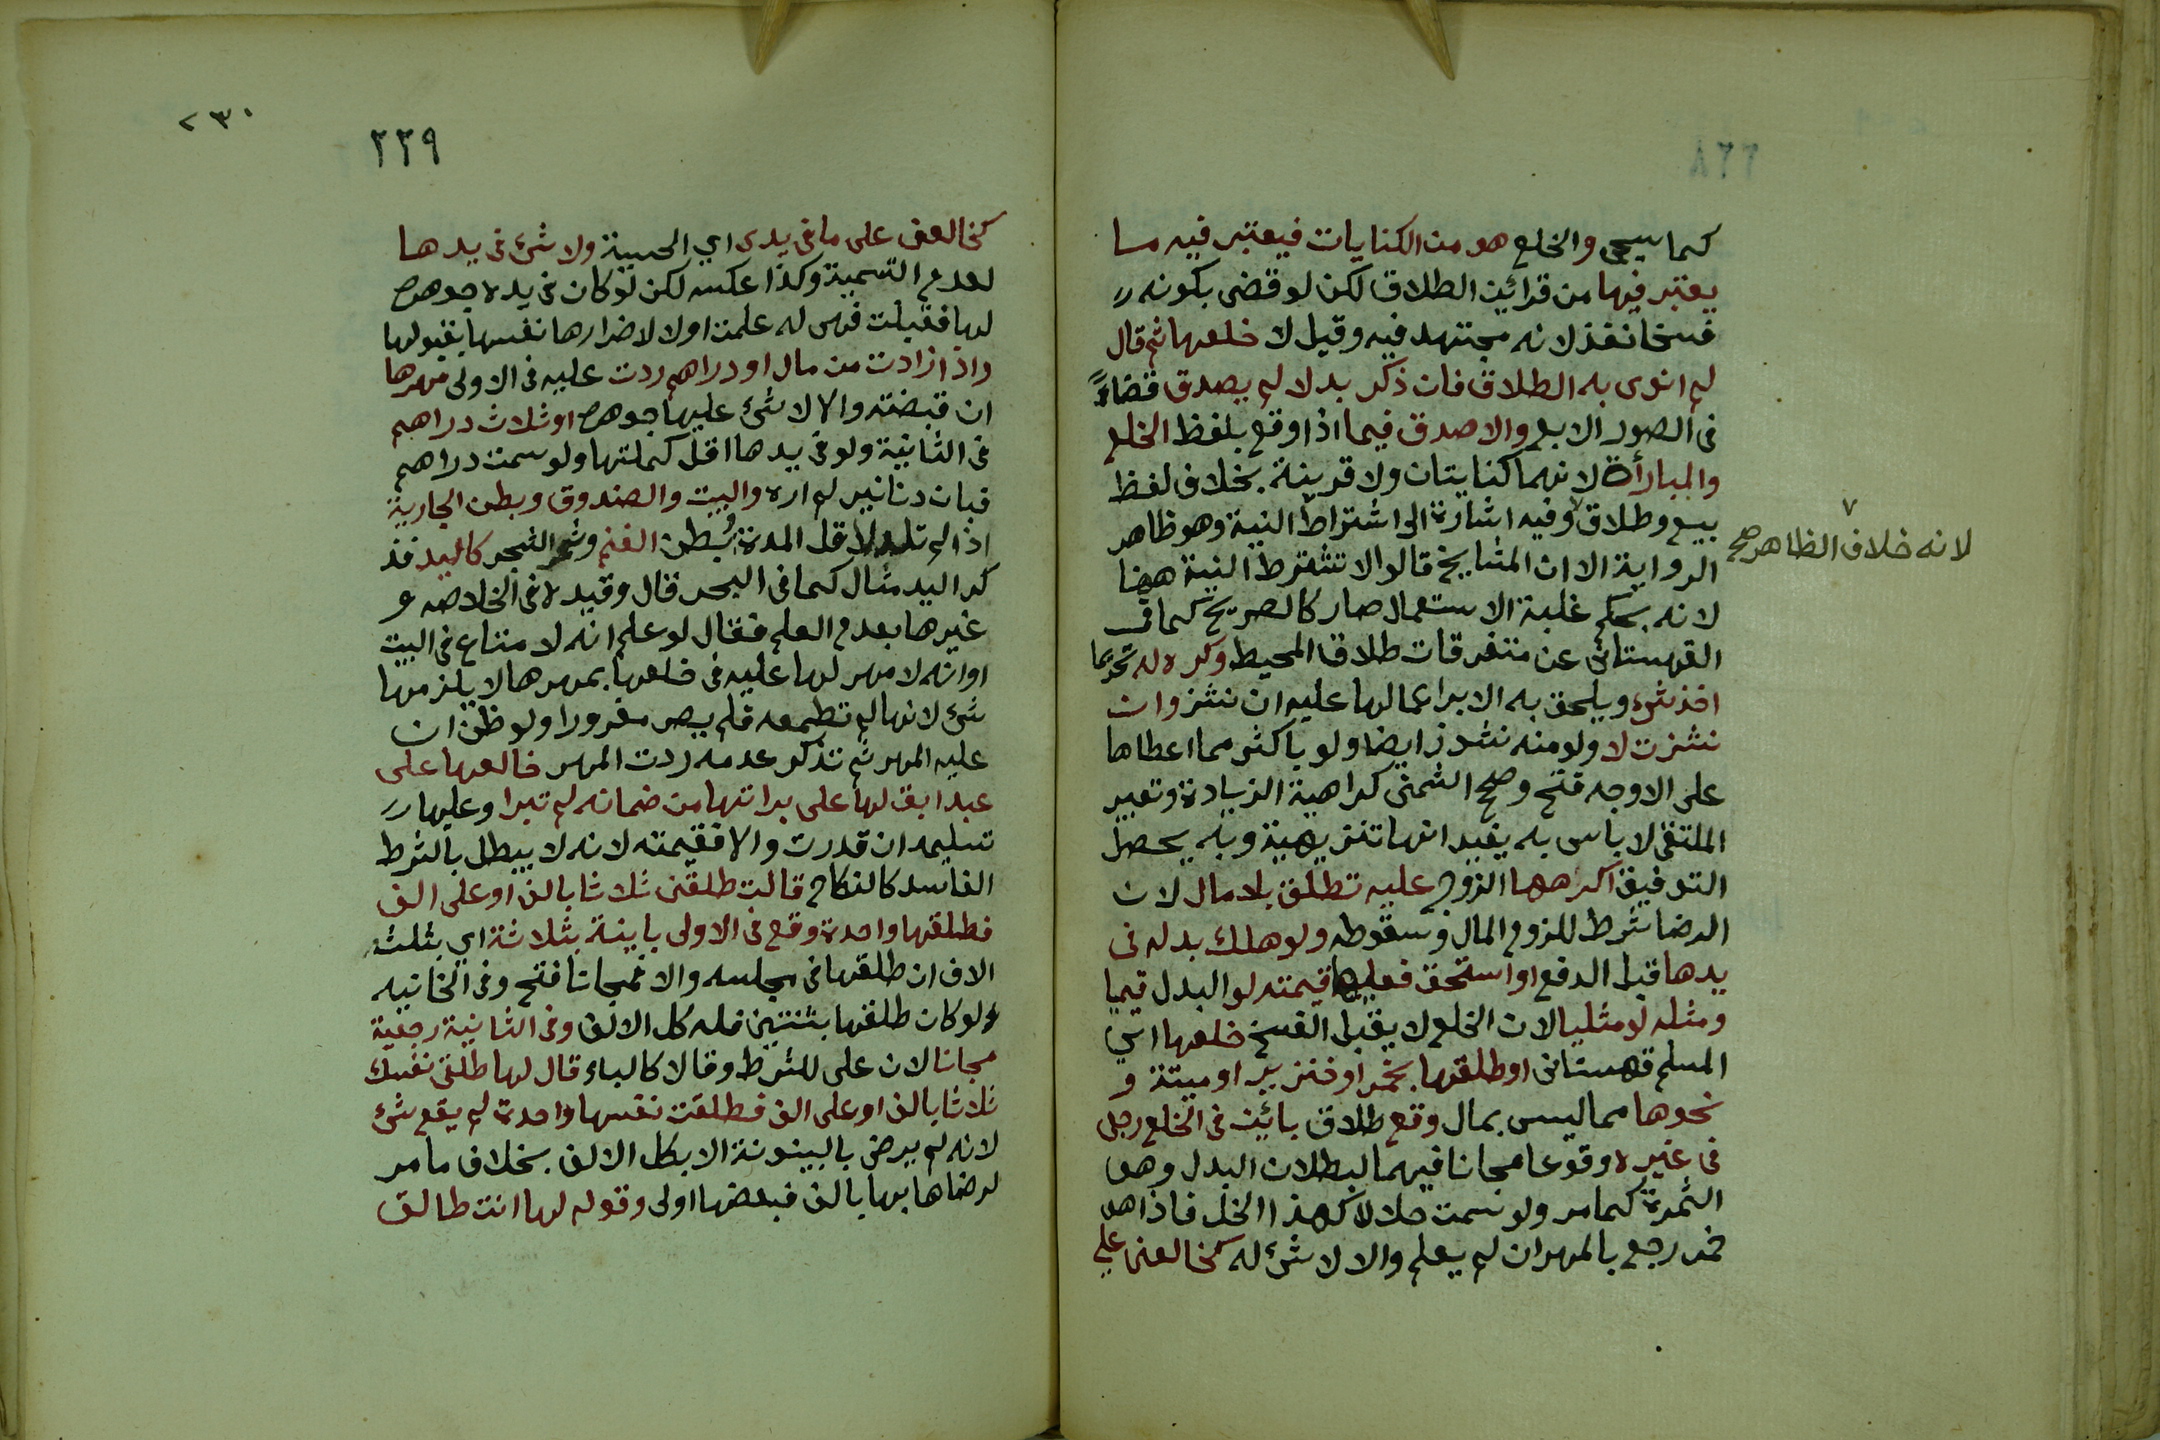 كما سيجى والخلع هو من الكنايات فيعتبر فيه ما
يعتبر فيها من قرائن الطلاق لكن لو قضى بكونه
فسخا نفذ لانه مجتهد فيه وقيل لا خلعها ثم قال
لم انوى به الطلاق فان ذكر بدلا لم يصدق قضاءً
فى الصور الاربع والا صدق فيما اذا اوقع بلفظ الخلع
والمبارأة لانهما كنايتان ولا قرينة بخلاف لفظ
بيع وطلاق ٧ وفيه اشارة الى اشتراط النية وهو ظاهر
لانه خلاف الظاهر صح
الرواية الا ان المشايخ قالوا لا تشترط النية ههنا
لانه بحكم غلبة الاستعمال صار كالصريح كما فى
القهستانى عن متفرقات طلاق المحيط وكره له تحريما
اخذ شىء ويلحق به الابرا عما لها عليه ان نشز وان
نشزت لا ولو منه نشوز ايضا ولو باكثر مما اعطاها
على الاوجه فتح وصحح الشمنى كراهية الزيادة وتعبير
الملتقى لا باس به يفيد انها تنزيهية وبه يحصل
التوفيق اكرهها الزوج عليه تطلق بلا مال لان
الرضا شرط للزوم المال وسقوطه ولو هلك بدله فى
يدها قبل الدفع او استحق فعليها قيمته لو البدل قيميا
ومثله لو مثليا لان الخلع لا يقبل الفسخ خلعها اي
المسلم قهستانى او طلقها بخمر او خنزير او ميتة و
نحوها مما ليس بمال وقع طلاق بائن فى الخلع رجعى
فى غيره وقوعا مجانا فيهما لبطلان البدل وهو
الثمرة كما مر ولو سمت حلالا كهذا الخل فاذا هو
خمر رجع بالمهر ان لم يعلم والا لا شىء له كخالعنى على
٢٣٠
٢٢٩
كخالعنى على ما فى يدى اي الحسية ولا شئ فى يدها
لعدم التسمية وكذا عكسه لكن لو كان فى يده جوهرة
لها فقبلت فهى له علمت اولا لاضرارها نفسها بقبولها
واذا زادت من مال او دراهم ردت عليه فى الاولى مهرها
ان قبضته والا لا شئ عليها جوهرة او ثلاث دراهم
فى الثانية ولو فى يدها اقل كملتها ولو سمت دراهم
فبان دنانير لم اره والبيت والصندوق وبطن الجارية
اذا لم تلد لاقل المدة وبطن الغنم وثمر الشجر كاليد فذ
كر اليد مثال كما فى البحر قال وقيده فى الخلاصه و
غيرها بعدم العلم فقال لو علم انه لا متاع فى البيت
او انه لا مهر لها عليه فى خلعها بمهرها لا يلزمها
شئ لانها لم تطمعه فلم يصر مغرورا ولو ظن ان
عليه المهر ثم تذكر عدمه ردت المهر خالعها على
عبد ابق لها على براتها من ضمانه لم تبرا وعليها
تسليمه ان قدرت والا فقيمته لانه لا يبطل بالشرط
الفاسد كالنكاح قالت طلقنى ثلاثا بالف او على الف
فطلقها واحدة وقع فى الاولى باينة بثلاثة اي بثلث
الاف ان طلقها فى مجلسه والا فمجانا فتح وفى الخانيه
ولو كان طلقها بثنتين فله كل الالف وفى الثانية رجعية
مجانا لان على للشرط وقالا كالباء قال لها طلقى نفسك
ثلاثا بالف او على الف فطلقت نفسها واحدة لم يقع شئ
لانه لم يرض بالبينونة الا بكل الالف بخلاف ما مر
لرضاها بها بالف فببعضها اولى وقوله لها انت طالق